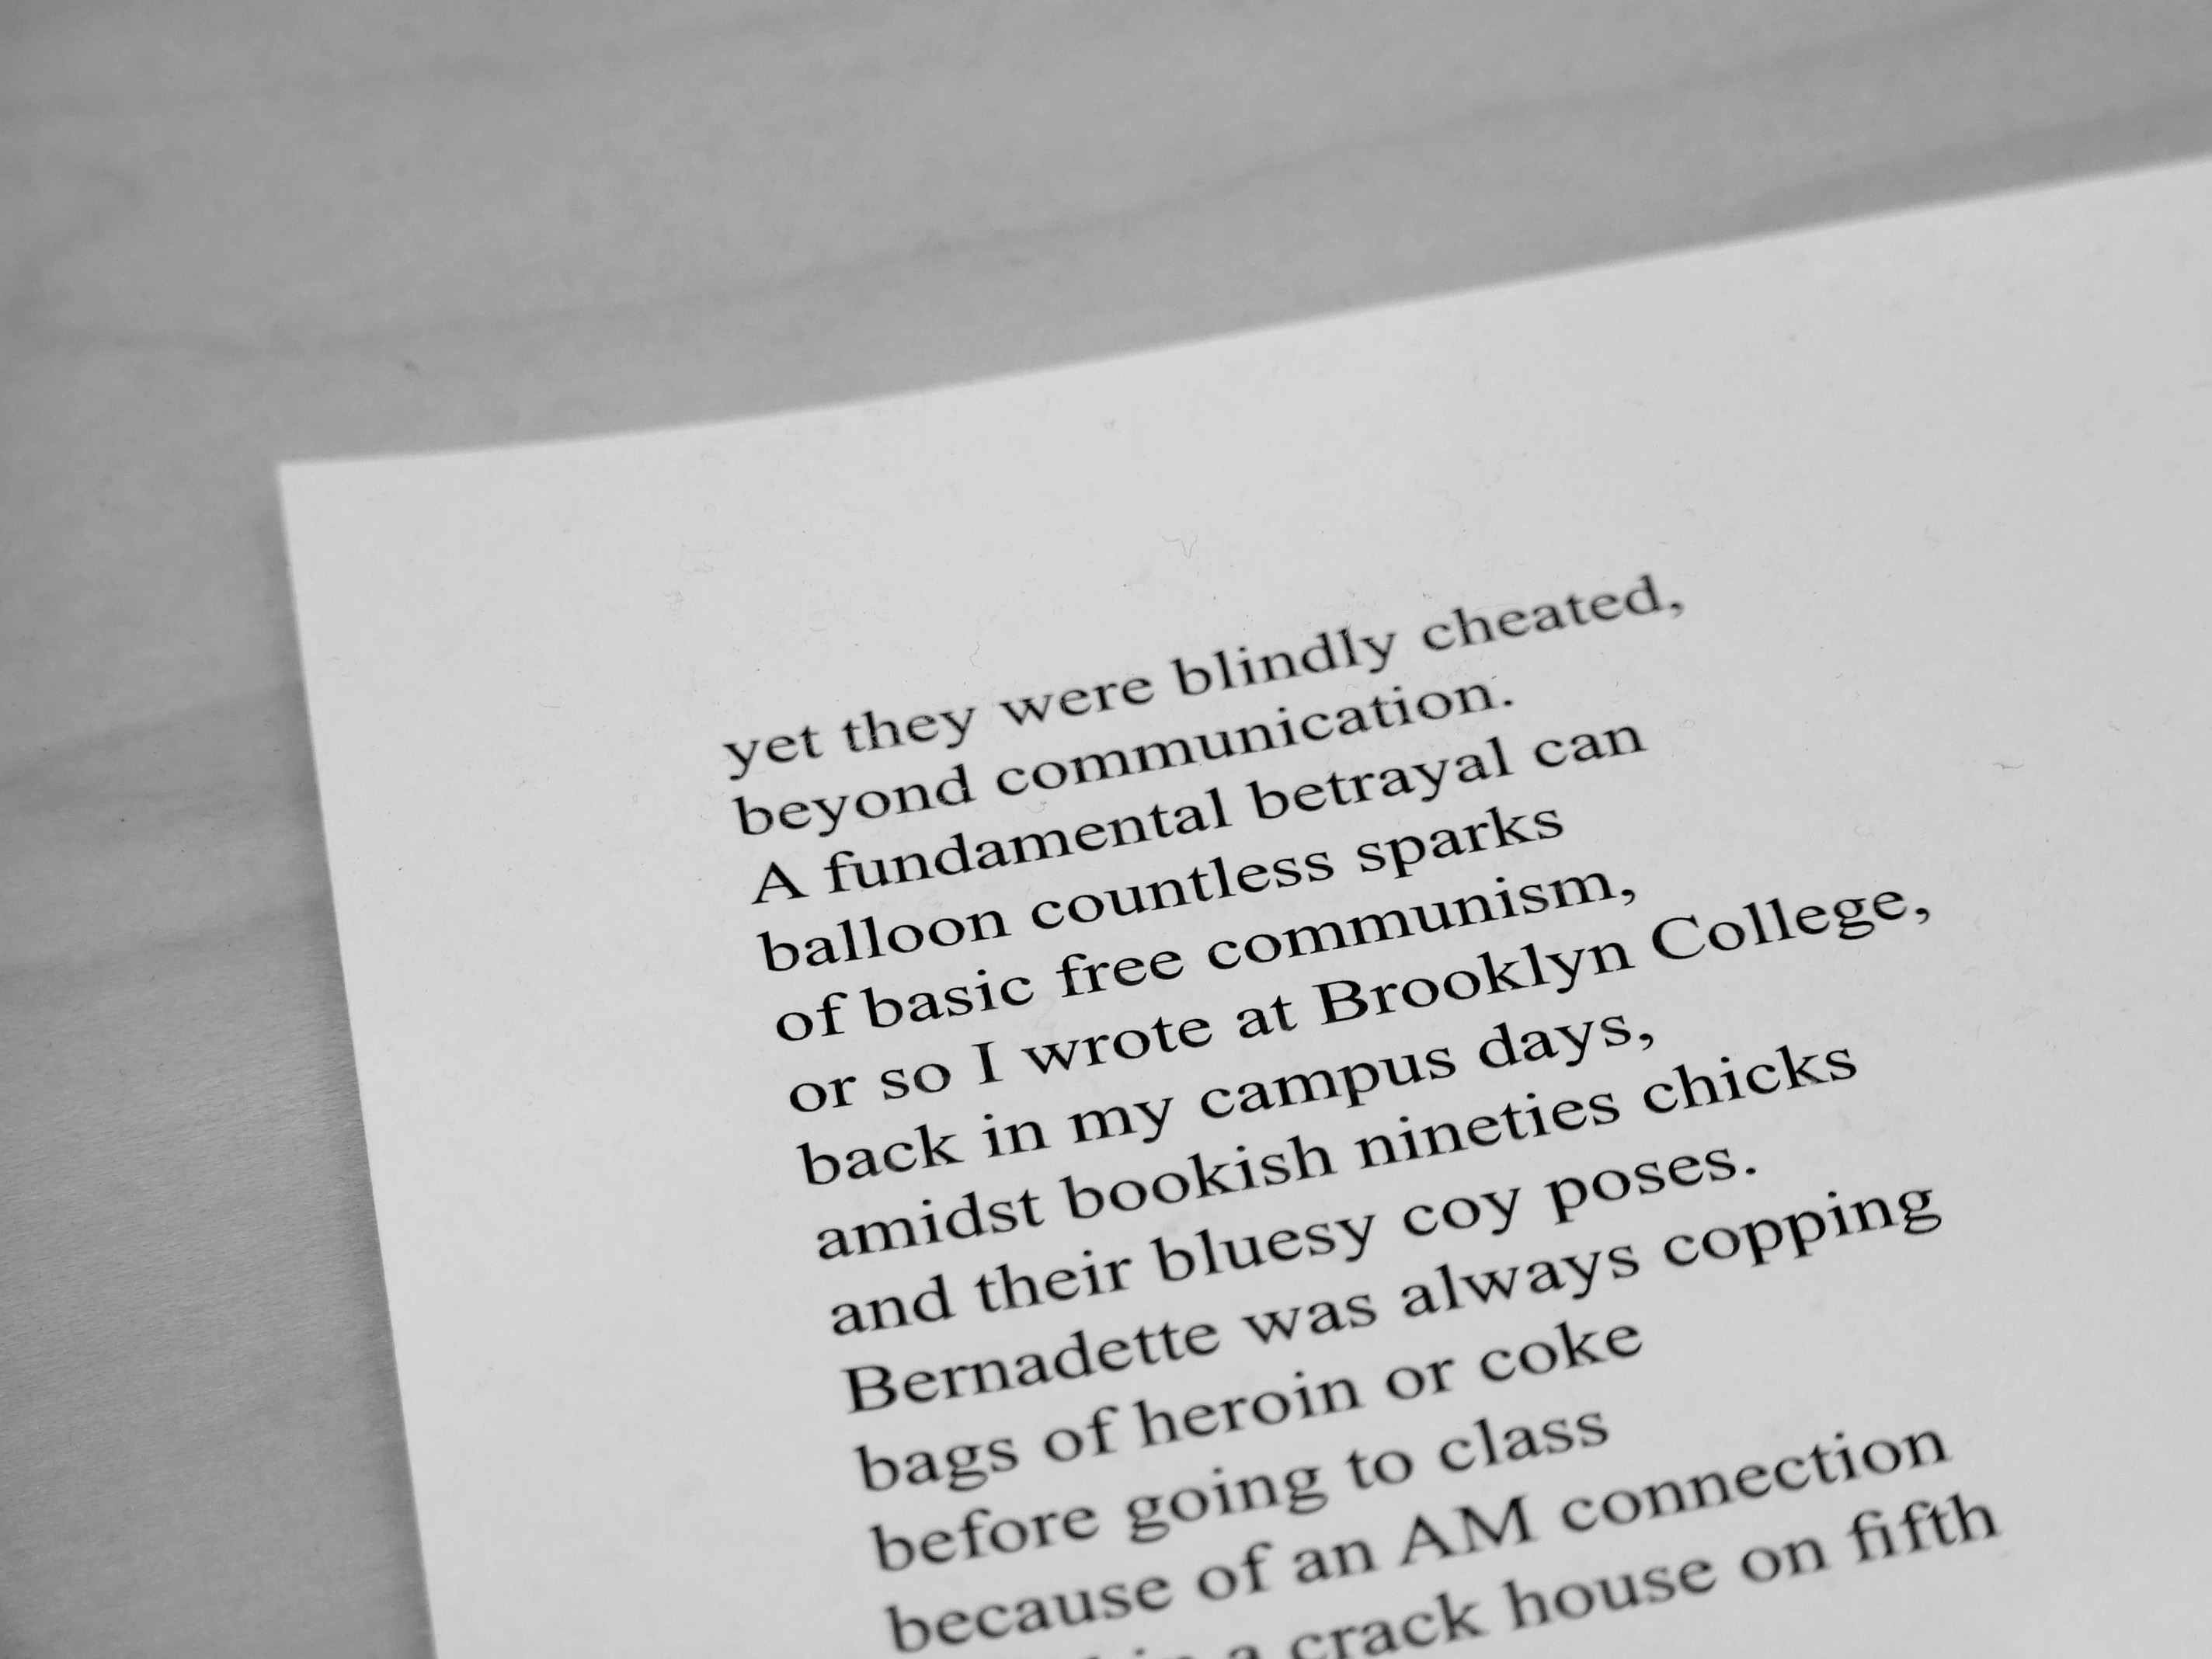 yet they were blindly cheated,
beyond communication.
A fundamental betrayal can
balloon countless sparks
of basic free communism,
or so I wrote at Brooklyn College,
back in my campus days,
amidst bookish nineties chicks
and their bluesy coy poses.
Bernadette was always copping
bags of heroin or coke
before going to class
because of an AM connection
a crack house on fifth